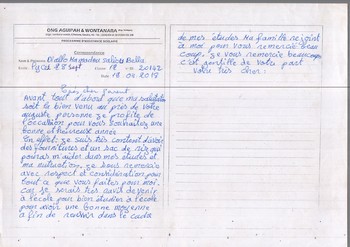 ONG AGUIPAH & WONTANARA
Correspondance
Diallo Mamadou Saliou Bella
18
20142
18 09 2018
Très cher parent
Avant tout d'abord que ma salutation
soit le bien venu au près de votre
auguste personne je profite de
l'occasion pour vous souhaitez une
bonne et heureuse année
En effet je suis très content d'avoir
des fournitures et un sac de riz qui
pourais m'aider dans mes études et
ma nutrition, je vous remercie
avec respect et considération pour
tout ce que vous faites pour moi.
car je serais très ravi de venir
à l'école pour bien étudier à l'école
pour avoir une bonne moyenne
a fin de renvoir dans le cadre
de mes études Ma famille rejoint
à moi pour vous remercié beau
coup, je vous remercie beaucoup
c'est gentille de votre part
votre très cher: